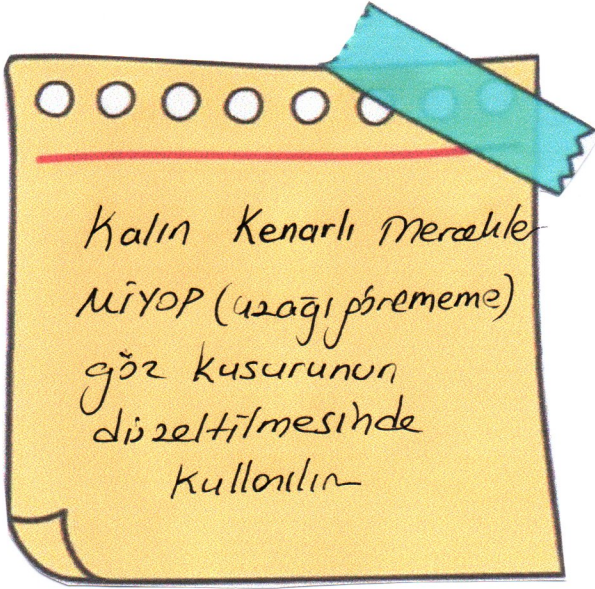 Kalın Kenarlı Mercekle
MİYOP (uzağı görememe)
göz kusurunun
düzeltilmesinde
kullanılır